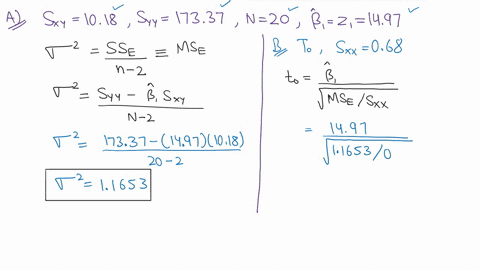 A) Sxy = 10.18 ✓, Syy = 173.37 ✓, N = 20 ✓, β̂₁ = z₁ = 14.97 ✓
σ² = SSE / n-2 ≡ MSE
σ² = Syy - β̂₁ Sxy / N-2
σ² = 173.37 - (14.97)(10.18) / 20-2
σ² = 1.1653
B) T₀, Sxx = 0.68
t₀ = β̂₁ / √MSE / Sxx
= 14.97 / √1.1653 / 0